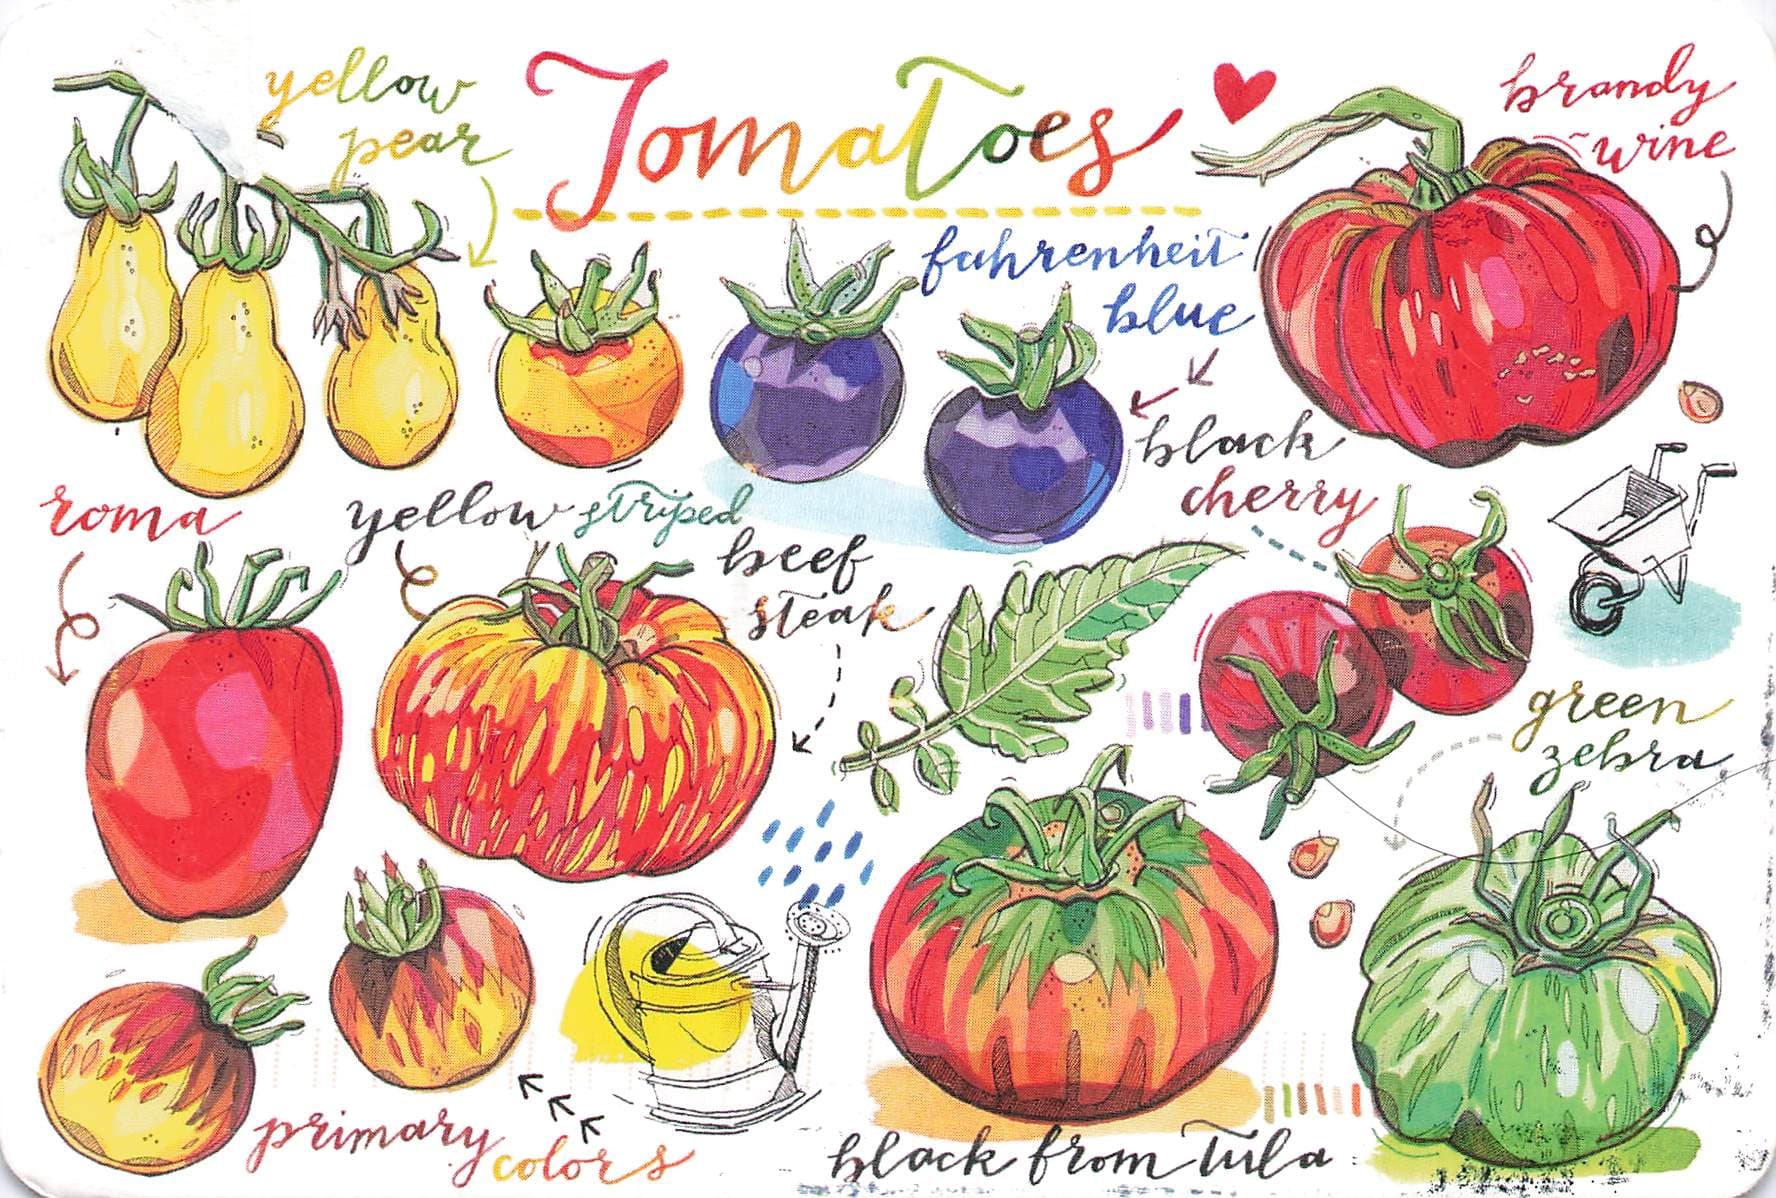 yellow
pear
Tomatoes
brandy
wine
fahrenheit
blue
black
cherry
roma
yellow striped
beef
steak
green
zebra
primary
colors
black from Tula